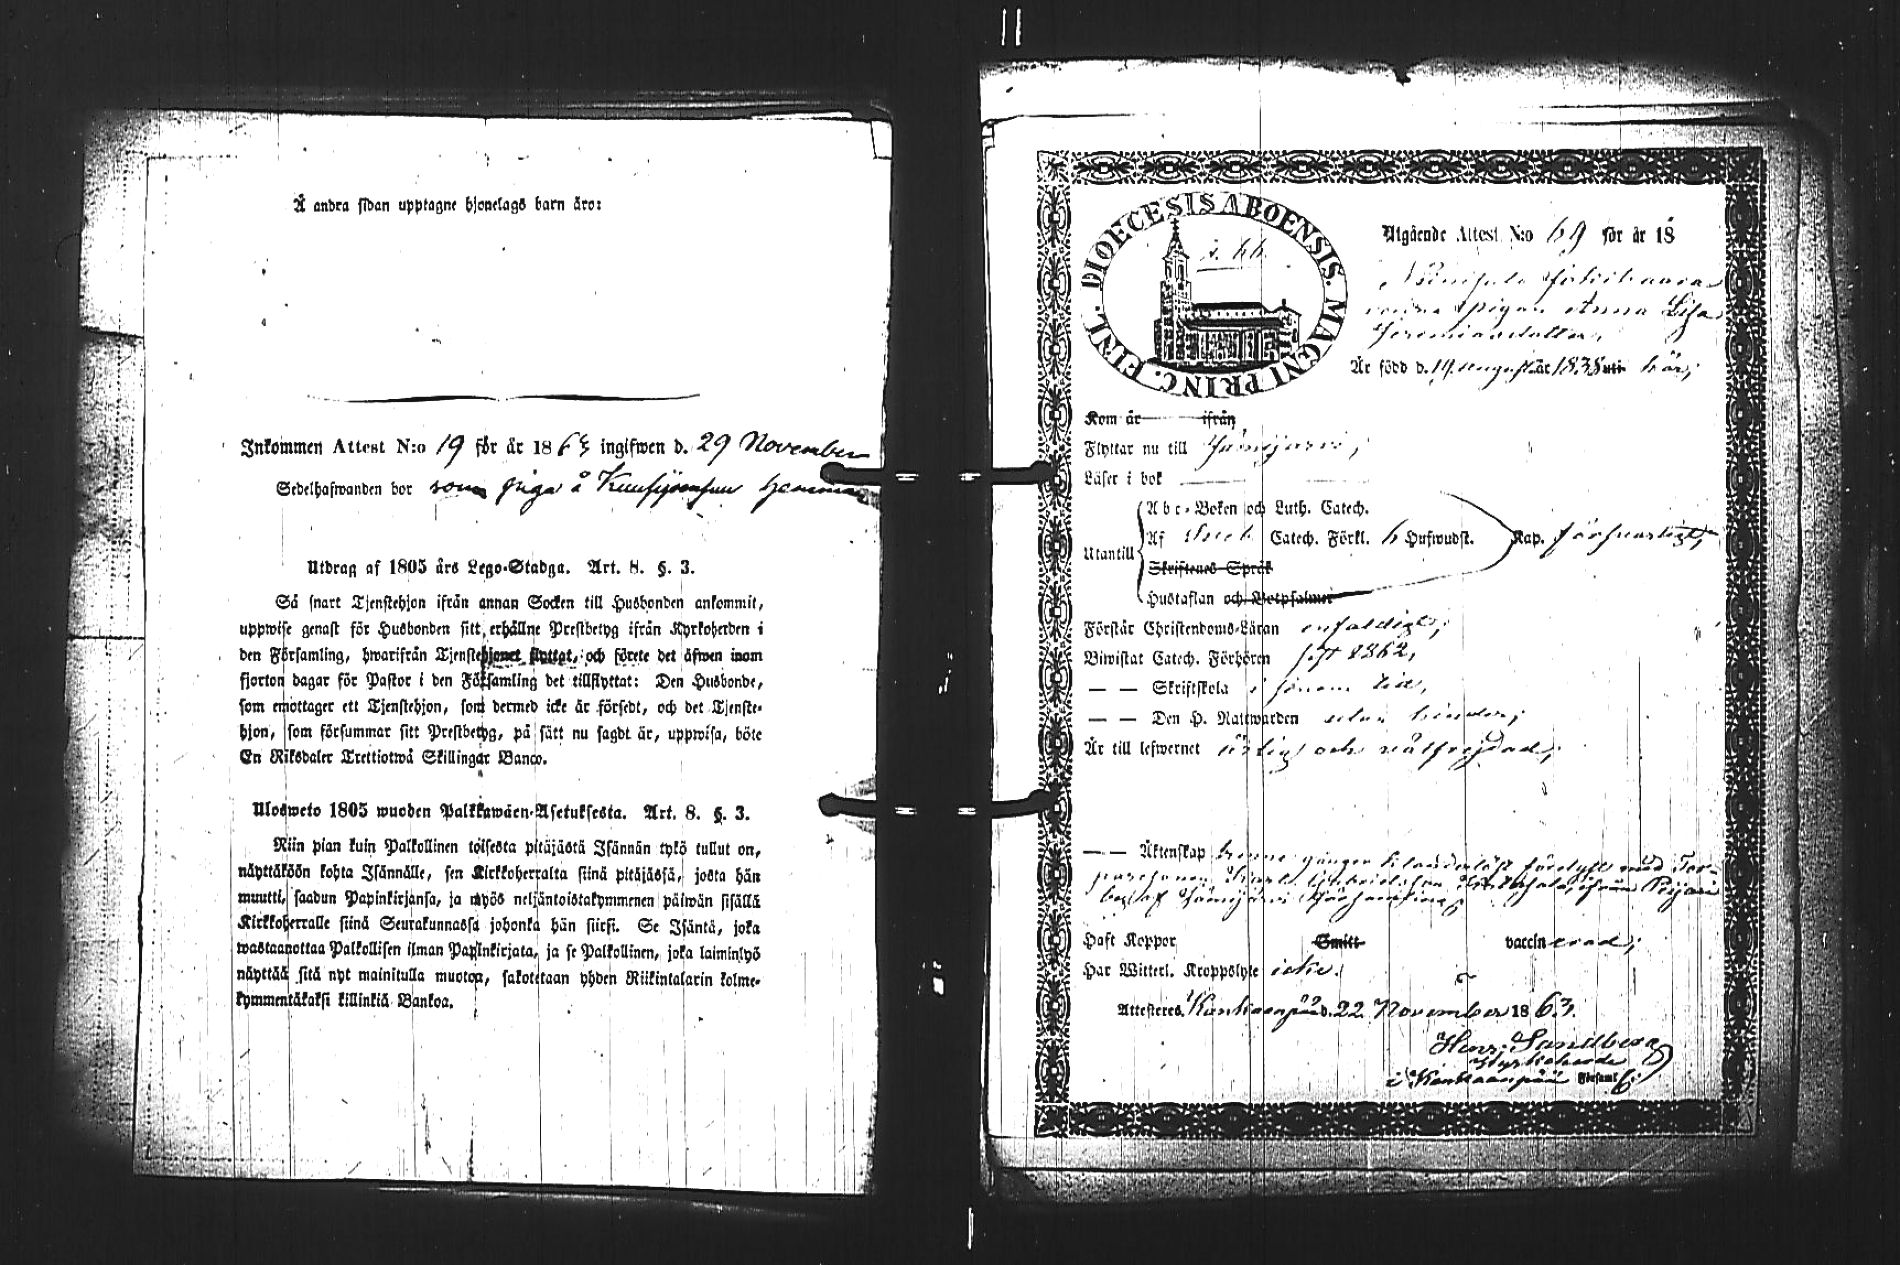 Å andra sidan upptagne hjonelags barn äro:
Inkommen Attest N:o 19 för år 1863 ingifwen d. 29 November
Sedelhafwanden bor som piga å hemman
Utdrag af 1805 års Lego-Stadga. Art. 8. §. 3.
Så snart Tjenstehjon ifrån annan Socken till Husbonden ankommit,
uppwise genast för Husbonden sitt erhållne Prestbetyg ifrån Kyrkoherden i
den Församling, hwarifrån Tjenstehjonet flyttat, och förete det äfwen inom
fjorton dagar för Pastor i den Församling det tillflyttat: Den Husbonde,
som emottager ett Tjenstehjon, som dermed icke är försedt, och det Tjenste-
hjon, som försummar sitt Prestbetyg, på sätt nu sagdt är, uppwisa, böte
En Riksdaler Trettiotwå Skillingar Banco.
Ulosweto 1805 wuoden Palkkawäen-Asetuksesta. Art. 8. §. 3.
Niin pian kuin Palkollinen toisesta pitäjästä Isännän tykö tullut on,
näyttäköön kohta Isännälle, sen Kirkkoherralta siinä pitäjässä, josta hän
muutti, saadun Papinkirjansa, ja myös neljäntoistakymmenen päiwän sisällä
Kirkkoherralle siinä Seurakunnassa johonka hän siirsi. Se Isäntä, joka
wastaanottaa Palkollisen ilman Papinkirjata, ja se Palkollinen, joka laiminlyö
näyttää sitä nyt mainitulla muotoa, sakotetaan yhden Riikintalarin kolme-
kymmentäkaksi killinkiä Bankoa.
DIOECESIS ABOENSIS. MAGNI PRINC. FINL.
Utgående Attest N:o 69 för år 18
pigan Anna Lisa
Jeremiasdotter,
Är född d. 19 August är 1838 uti här;
Kom år ifrån
Flyttar nu till Jämijärvi;
Läser i bok
Utantill
Abc-Boken och Luth. Catech.
Af Sveb. Catech. Förkl. 6 Hufwudst. Kap. försvarligt;
Skriftenes Språk
Hustaflan och Botpsalmer
Förstår Christendoms-Läran enfaldigt;
Biwistat Catech. Förhören sist 1862,
— — Skriftskola i sinom tid,
— — Den H. Nattwarden utan hinder;
Är till lefwernet ärlig och välfrejdad;
— — Äktenskap
Haft Koppor Smitt vaccinerad;
Har Witterl. Kroppslyte icke.
Attesteres, Kankaanpää d. 22 November 1863.
Henr. Sandberg
Kyrkoherde
i Kankaanpää Församl.